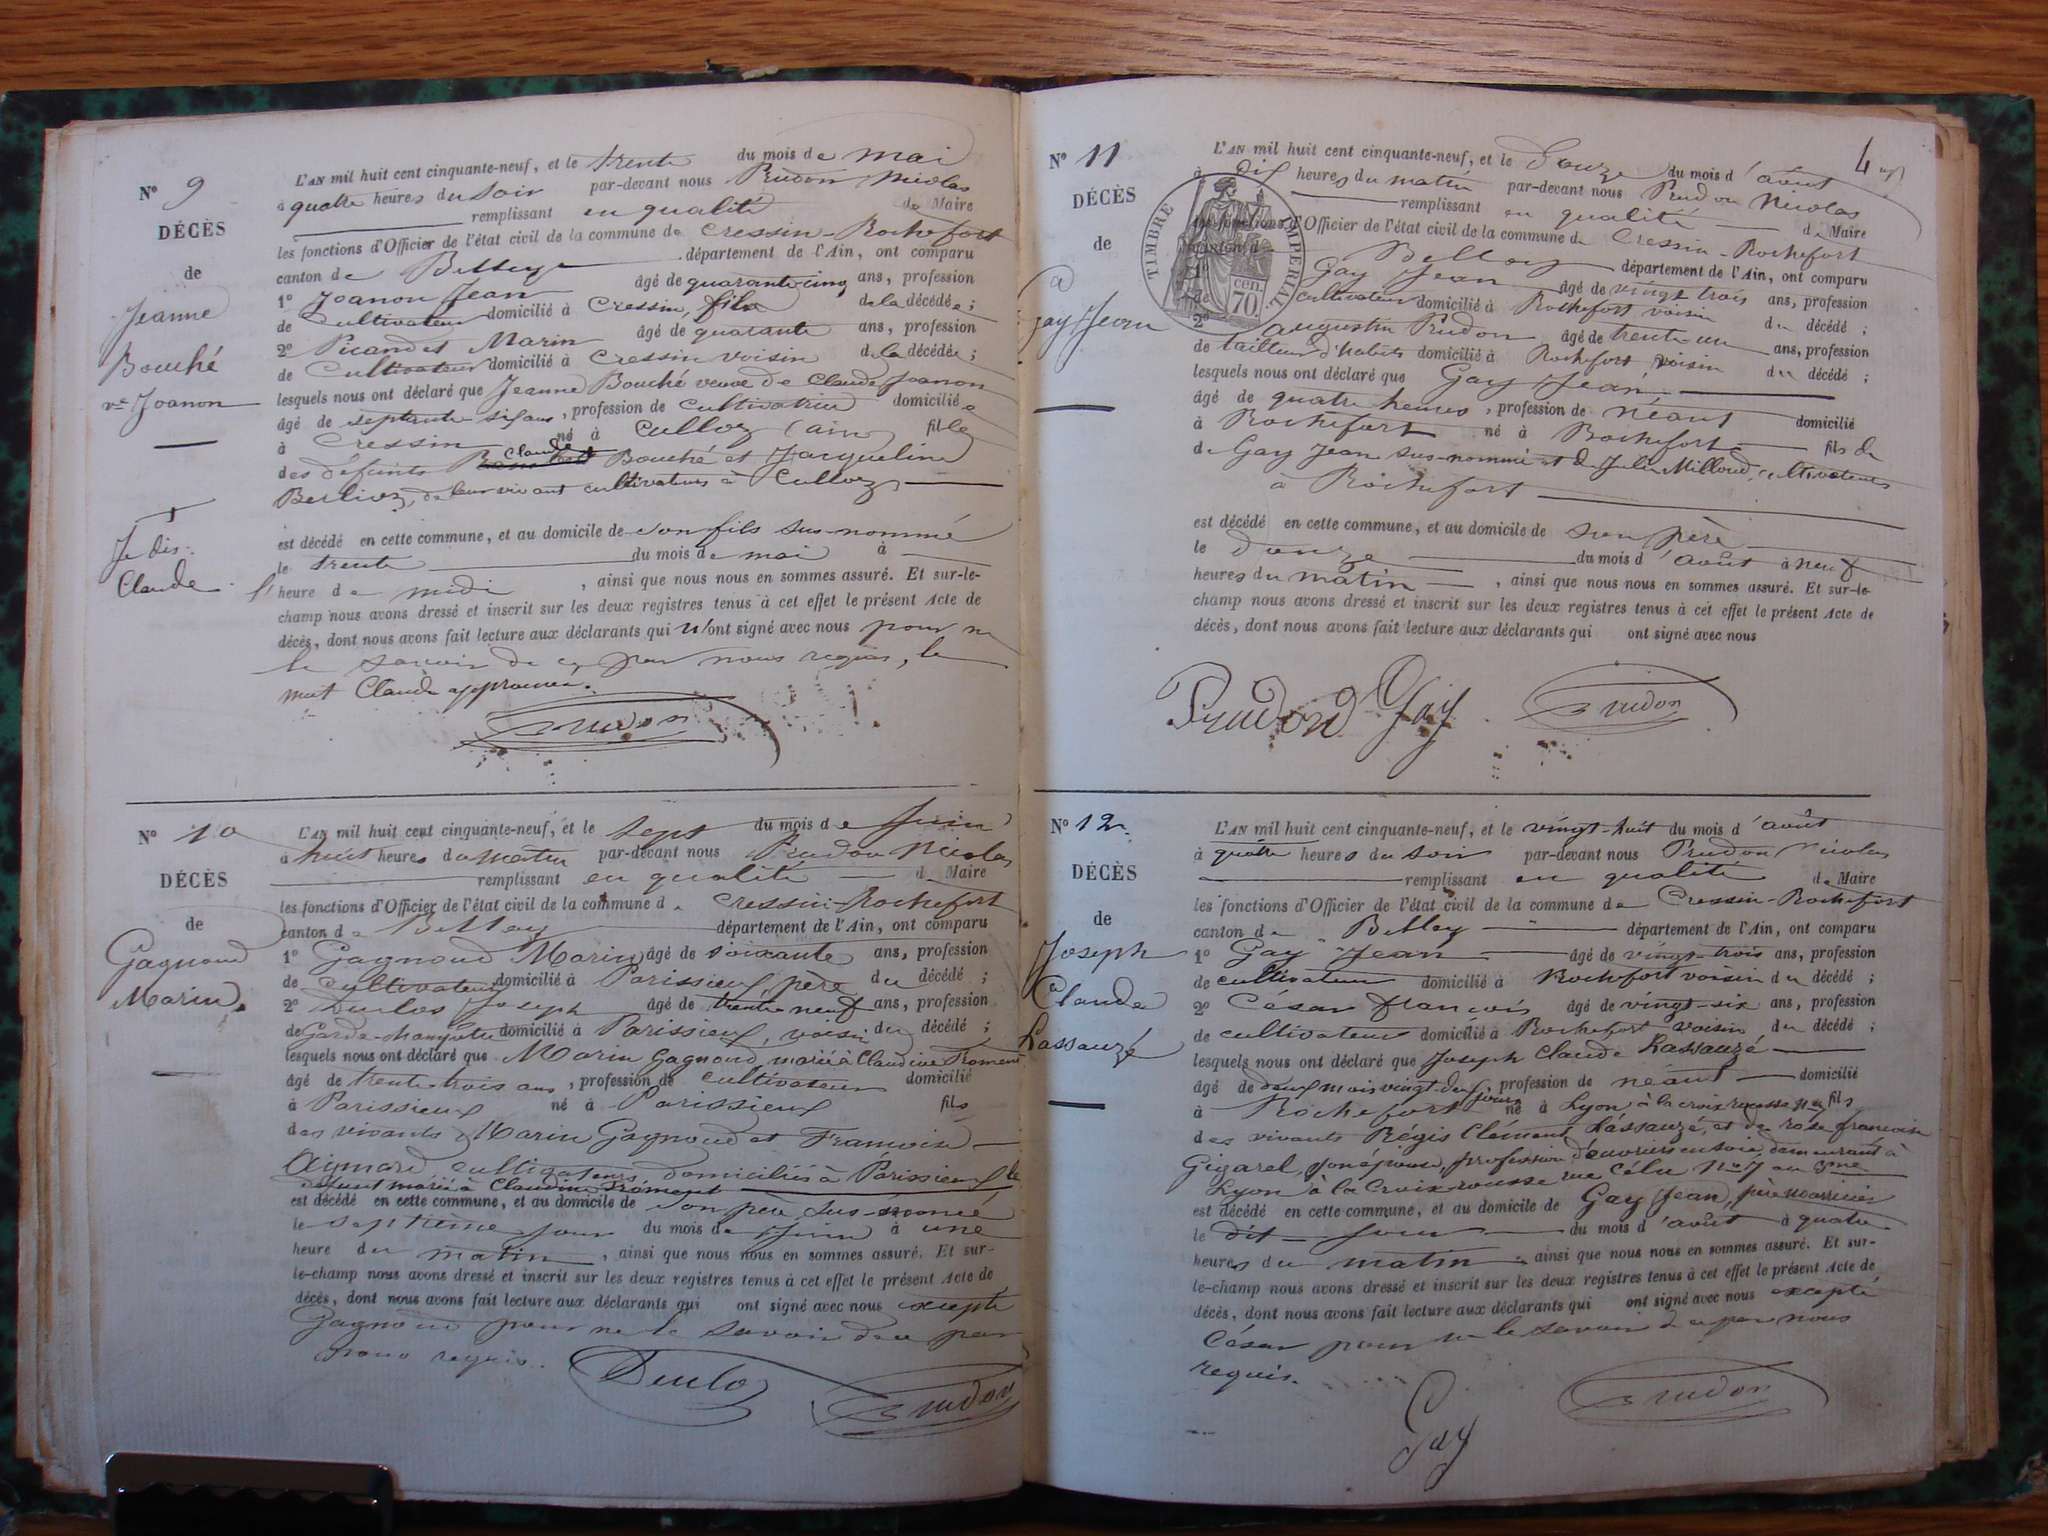 N° 9
DÉCÈS
de
Jeanne
Bouché
ve Joanon
Je dis:
Claude
L'AN mil huit cent cinquante-neuf, et le trente du mois de mai
à quatre heures du soir par-devant nous Prudon Nicolas
remplissant en qualité de Maire
les fonctions d'Officier de l'état civil de la commune de Cressin-Rochefort
canton de Belley département de l'Ain, ont comparu
1° Joanon Jean âgé de quarante-cinq ans, profession
de Cultivateur domicilié à Cressin, fils de la décédée;
2° Picandet Marin âgé de quarante ans, profession
de Cultivateur domicilié à Cressin voisin de la décédée;
lesquels nous ont déclaré que Jeanne Bouché veuve de Claude Joanon
âgé de septante six ans, profession de cultivatrice domiciliée
à Cressin né à Culloz (ain) fille
des défunts Claude Bouché et Jacqueline
Berlioz, de leur vivant cultivateurs à Culloz
est décédé en cette commune, et au domicile de son fils sus-nommé
le trente du mois de mai à
l'heure de midi, ainsi que nous nous en sommes assuré. Et sur-le-
champ nous avons dressé et inscrit sur les deux registres tenus à cet effet le présent Acte de
décès, dont nous avons fait lecture aux déclarants qui n'ont signé avec nous pour ne
le savoir de ce par nous requis, le
mot Claude approuvé.
Prudon
N° 10
DÉCÈS
de
Gagnoud
Marin
L'AN mil huit cent cinquante-neuf, et le sept du mois de Juin
à huit heures du matin par-devant nous Prudon Nicolas
remplissant en qualité de Maire
les fonctions d'Officier de l'état civil de la commune de Cressin-Rochefort
canton de Belley département de l'Ain, ont comparu
1° Gagnoud Marin âgé de soixante ans, profession
de cultivateur domicilié à Parissieux, père du décédé;
2° Duclos Joseph âgé de trente neuf ans, profession
de Garde-champêtre domicilié à Parissieux, voisin du décédé;
lesquels nous ont déclaré que Marin Gagnoud, marié à Claudine Froment
âgé de trente trois ans, profession de cultivateur domicilié
à Parissieux né à Parissieux fils
des vivants Marin Gagnoud et Francoise
Aimard, cultivateurs domiciliés à Parissieux, le
défunt marié à Claudine Froment
est décédé en cette commune, et au domicile de son père, sus-nommé
le septième jour du mois de Juin à une
heure du matin, ainsi que nous nous en sommes assuré. Et sur-
le-champ nous avons dressé et inscrit sur les deux registres tenus à cet effet le présent Acte de
décès, dont nous avons fait lecture aux déclarants qui ont signé avec nous excepté
Gagnoud pour ne le savoir de ce par
nous requis.
Duclo
Prudon
4
N° 11
DÉCÈS
de
Gay Jean
TIMBRE IMPERIAL
70 cen.
L'AN mil huit cent cinquante-neuf, et le Douze du mois d'août
à dix heures du matin par-devant nous Prudon Nicolas
remplissant en qualité de Maire
les fonctions d'Officier de l'état civil de la commune de Cressin-Rochefort
canton de Belley département de l'Ain, ont comparu
1° Gay Jean âgé de vingt trois ans, profession
de cultivateur domicilié à Rochefort voisin du décédé;
2° augustin Prudon âgé de trente-un ans, profession
de tailleur d'habits domicilié à Rochefort voisin du décédé;
lesquels nous ont déclaré que Gay Jean
âgé de quatre heures, profession de néant domicilié
à Rochefort né à Rochefort fils de
de Gay Jean sus-nommé et de Julie Milloud, cultivateurs
à Rochefort
est décédé en cette commune, et au domicile de son père
le douze du mois d'août à neuf
heures du matin, ainsi que nous nous en sommes assuré. Et sur-le-
champ nous avons dressé et inscrit sur les deux registres tenus à cet effet le présent Acte de
décès, dont nous avons fait lecture aux déclarants qui ont signé avec nous
Prudond Gay Prudon
N° 12
DÉCÈS
de
Joseph
Claude
Lassauzé
L'AN mil huit cent cinquante-neuf, et le vingt-huit du mois d'août
à quatre heures du soir par-devant nous Prudon Nicolas
remplissant en qualité de Maire
les fonctions d'Officier de l'état civil de la commune de Cressin-Rochefort
canton de Belley département de l'Ain, ont comparu
1° Gay Jean âgé de vingt-trois ans, profession
de cultivateur domicilié à Rochefort voisin du décédé;
2° César francois âgé de vingt-six ans, profession
de cultivateur domicilié à Rochefort voisin du décédé;
lesquels nous ont déclaré que Joseph Claude Lassauzé
âgé de deux mois vingt-deux jours, profession de néant domicilié
à Rochefort né à Lyon à la croix rousse fils
des vivants Régis Clément Lassauzé, et de rose francoise
Gigarel son épouse, profession d'ouvriers en soie, demeurant à
Lyon à la Croix-rousse rue Célu N° 7 au 3me
est décédé en cette commune, et au domicile de Gay Jean, père nourricier
le dit jour du mois d'août à quatre
heures du matin, ainsi que nous nous en sommes assuré. Et sur-
le-champ nous avons dressé et inscrit sur les deux registres tenus à cet effet le présent Acte de
décès, dont nous avons fait lecture aux déclarants qui ont signé avec nous excepté
César pour ne le savoir de ce par nous
requis.
Gay
Prudon